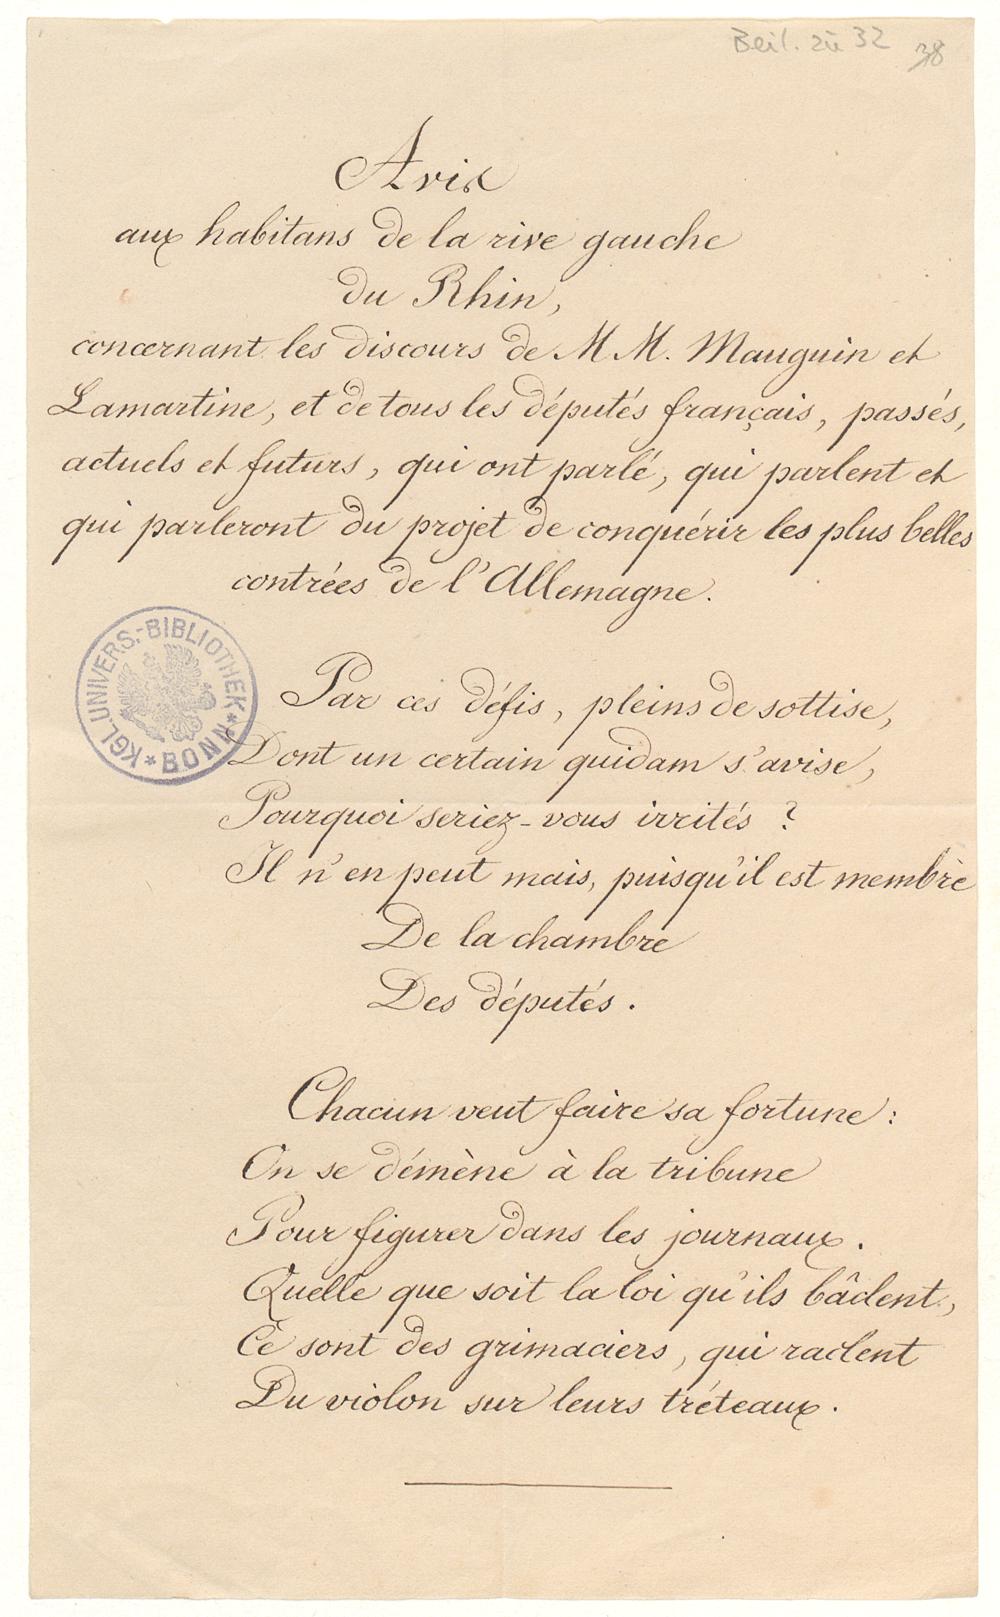 Beil. zu 32 38
Avis
aux habitans de la rive gauche
du Rhin,
concernant les discours de M M. Mauguin et
Lamartine, et de tous les députés français, passés,
actuels et futurs, qui ont parlé, qui parlent et
qui parleront du projet de conquérir les plus belles
contrées de l'Allemagne.
KGL. UNIVERS.-BIBLIOTHEK * BONN *
Par ces défis, pleins de sottise,
Dont un certain quidam s'avise,
Pourquoi seriez-vous irrités ?
Il n'en peut mais, puisqu'il est membre
De la chambre
Des députés.
Chacun veut faire sa fortune :
On se démène à la tribune
Pour figurer dans les journaux.
Quelle que soit la loi qu'ils bâclent,
Ce sont des grimaciers, qui raclent
Du violon sur leurs tréteaux.